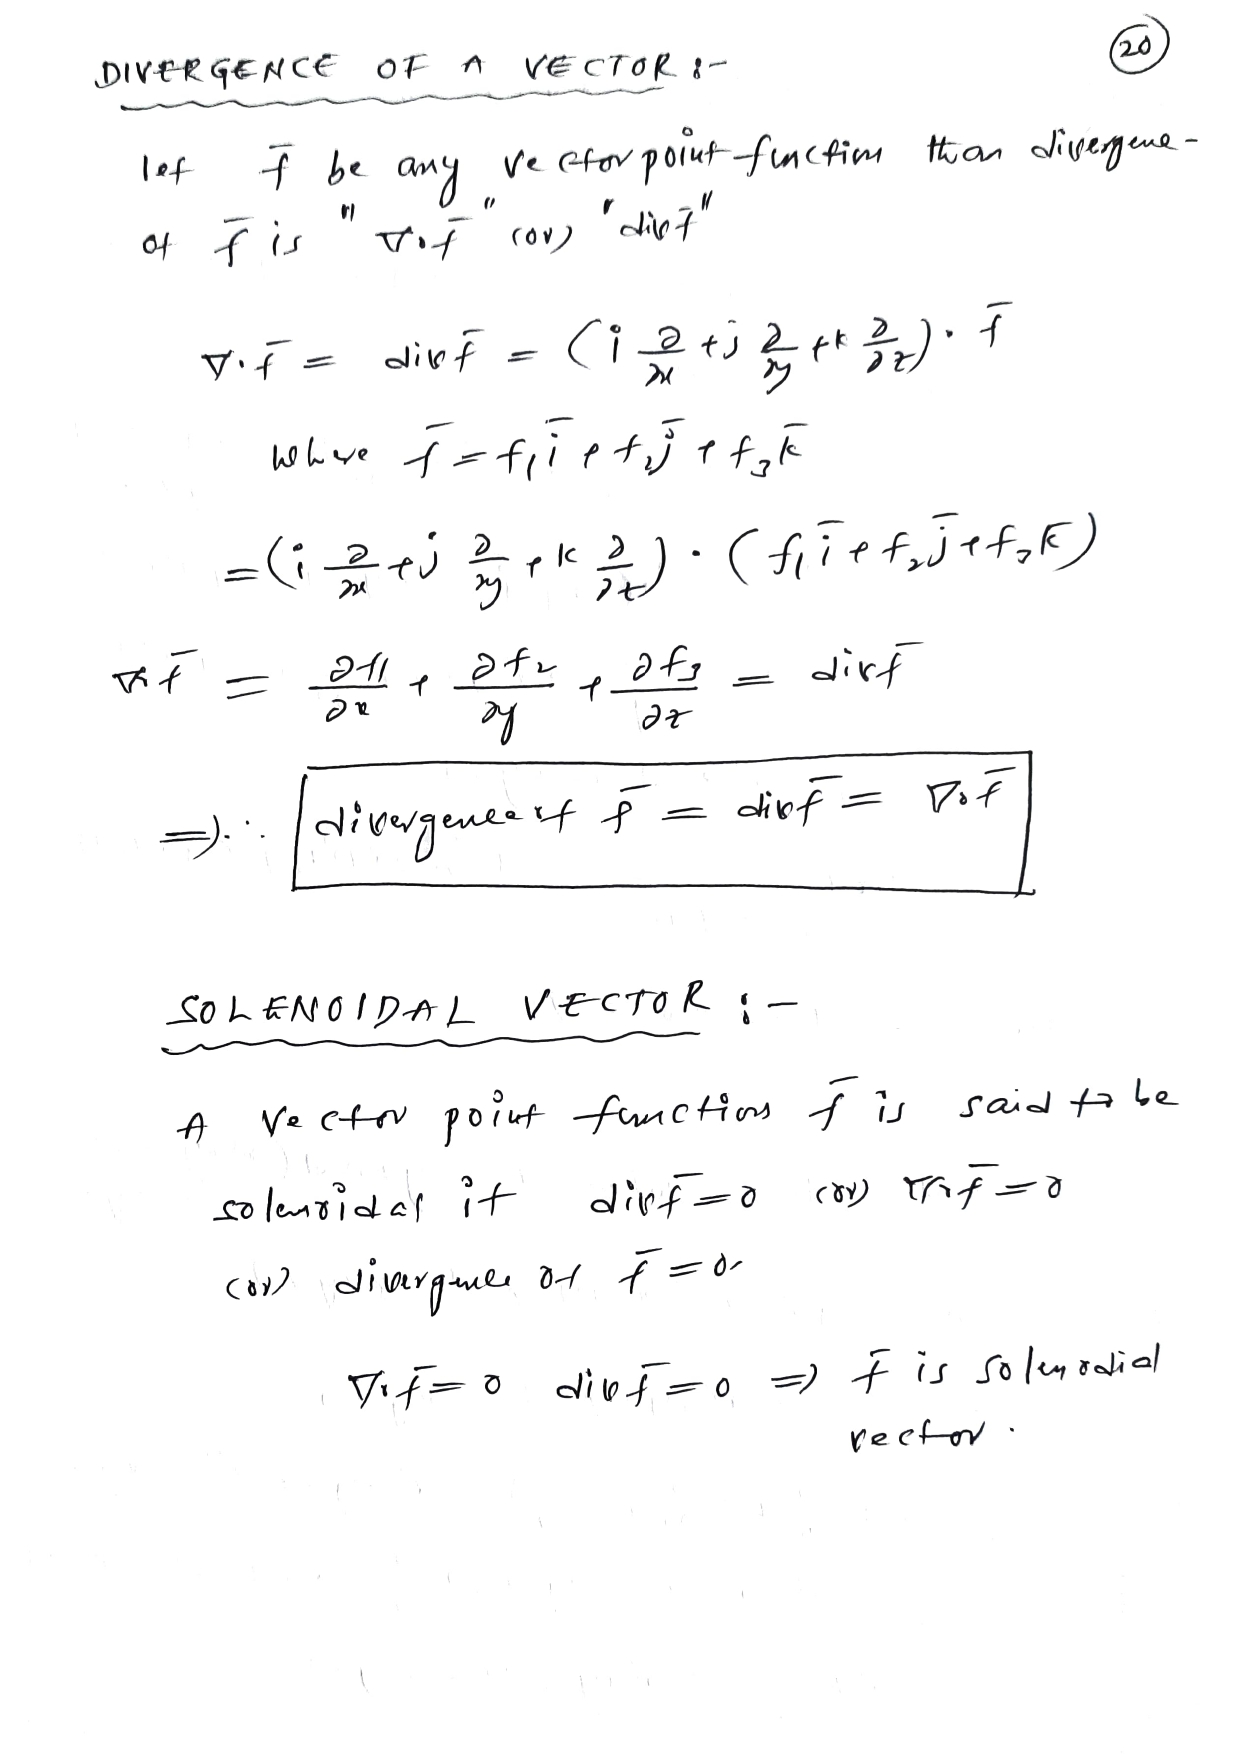 20
DIVERGENCE OF A VECTOR :-
let f̄ be any vector point function than divergene-
of f̄ is "∇·f̄" (or) "div f̄"
∇·f̄ = div f̄ = (i ∂/∂x + j ∂/∂y + k ∂/∂z) · f̄
where f̄ = f₁ī + f₂j̄ + f₃k̄
= (i ∂/∂x + j ∂/∂y + k ∂/∂z) · (f₁ī + f₂j̄ + f₃k̄)
∇·f̄ = ∂f₁/∂x + ∂f₂/∂y + ∂f₃/∂z = div f̄
⇒ ∴ divergence of f̄ = div f̄ = ∇·f̄
SOLENOIDAL VECTOR :-
A vector point function f̄ is said to be
solenoidal if div f̄ = 0 (or) ∇·f̄ = 0
(or) divergence of f̄ = 0.
∇·f̄ = 0 div f̄ = 0 ⇒ f̄ is solenodial
vector.